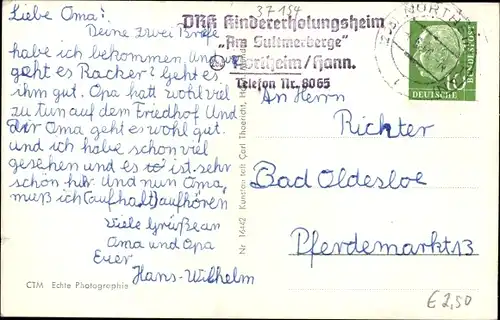 37-154
Liebe Oma!
Deine zwei Briefe
habe ich bekommen. Und
geht es Racker? Geht es
ihm gut. Opa hatt wohl viel
zu tun auf dem Friedhof. Und
dir Oma geht es wohl gut.
und ich habe schon viel
gesehen und es ist sehr
schön hir. Und nun Oma,
muß ich (aufhalt) aufhören
Viele Grüße an
Oma und Opa
Euer
Hans-Wilhelm
CTM Echte Photographie
Nr. 16442 Kunsten seit Carl Thoericht,
DRK Kindererholungsheim
„Am Sultmerberge"
Northeim/Hann.
Telefon Nr. 8065
NORTH
10
DEUTSCHE
BUNDESPOST
An Herrn
Richter
Bad Oldesloe
Pferdemarkt 13
€ 2,50